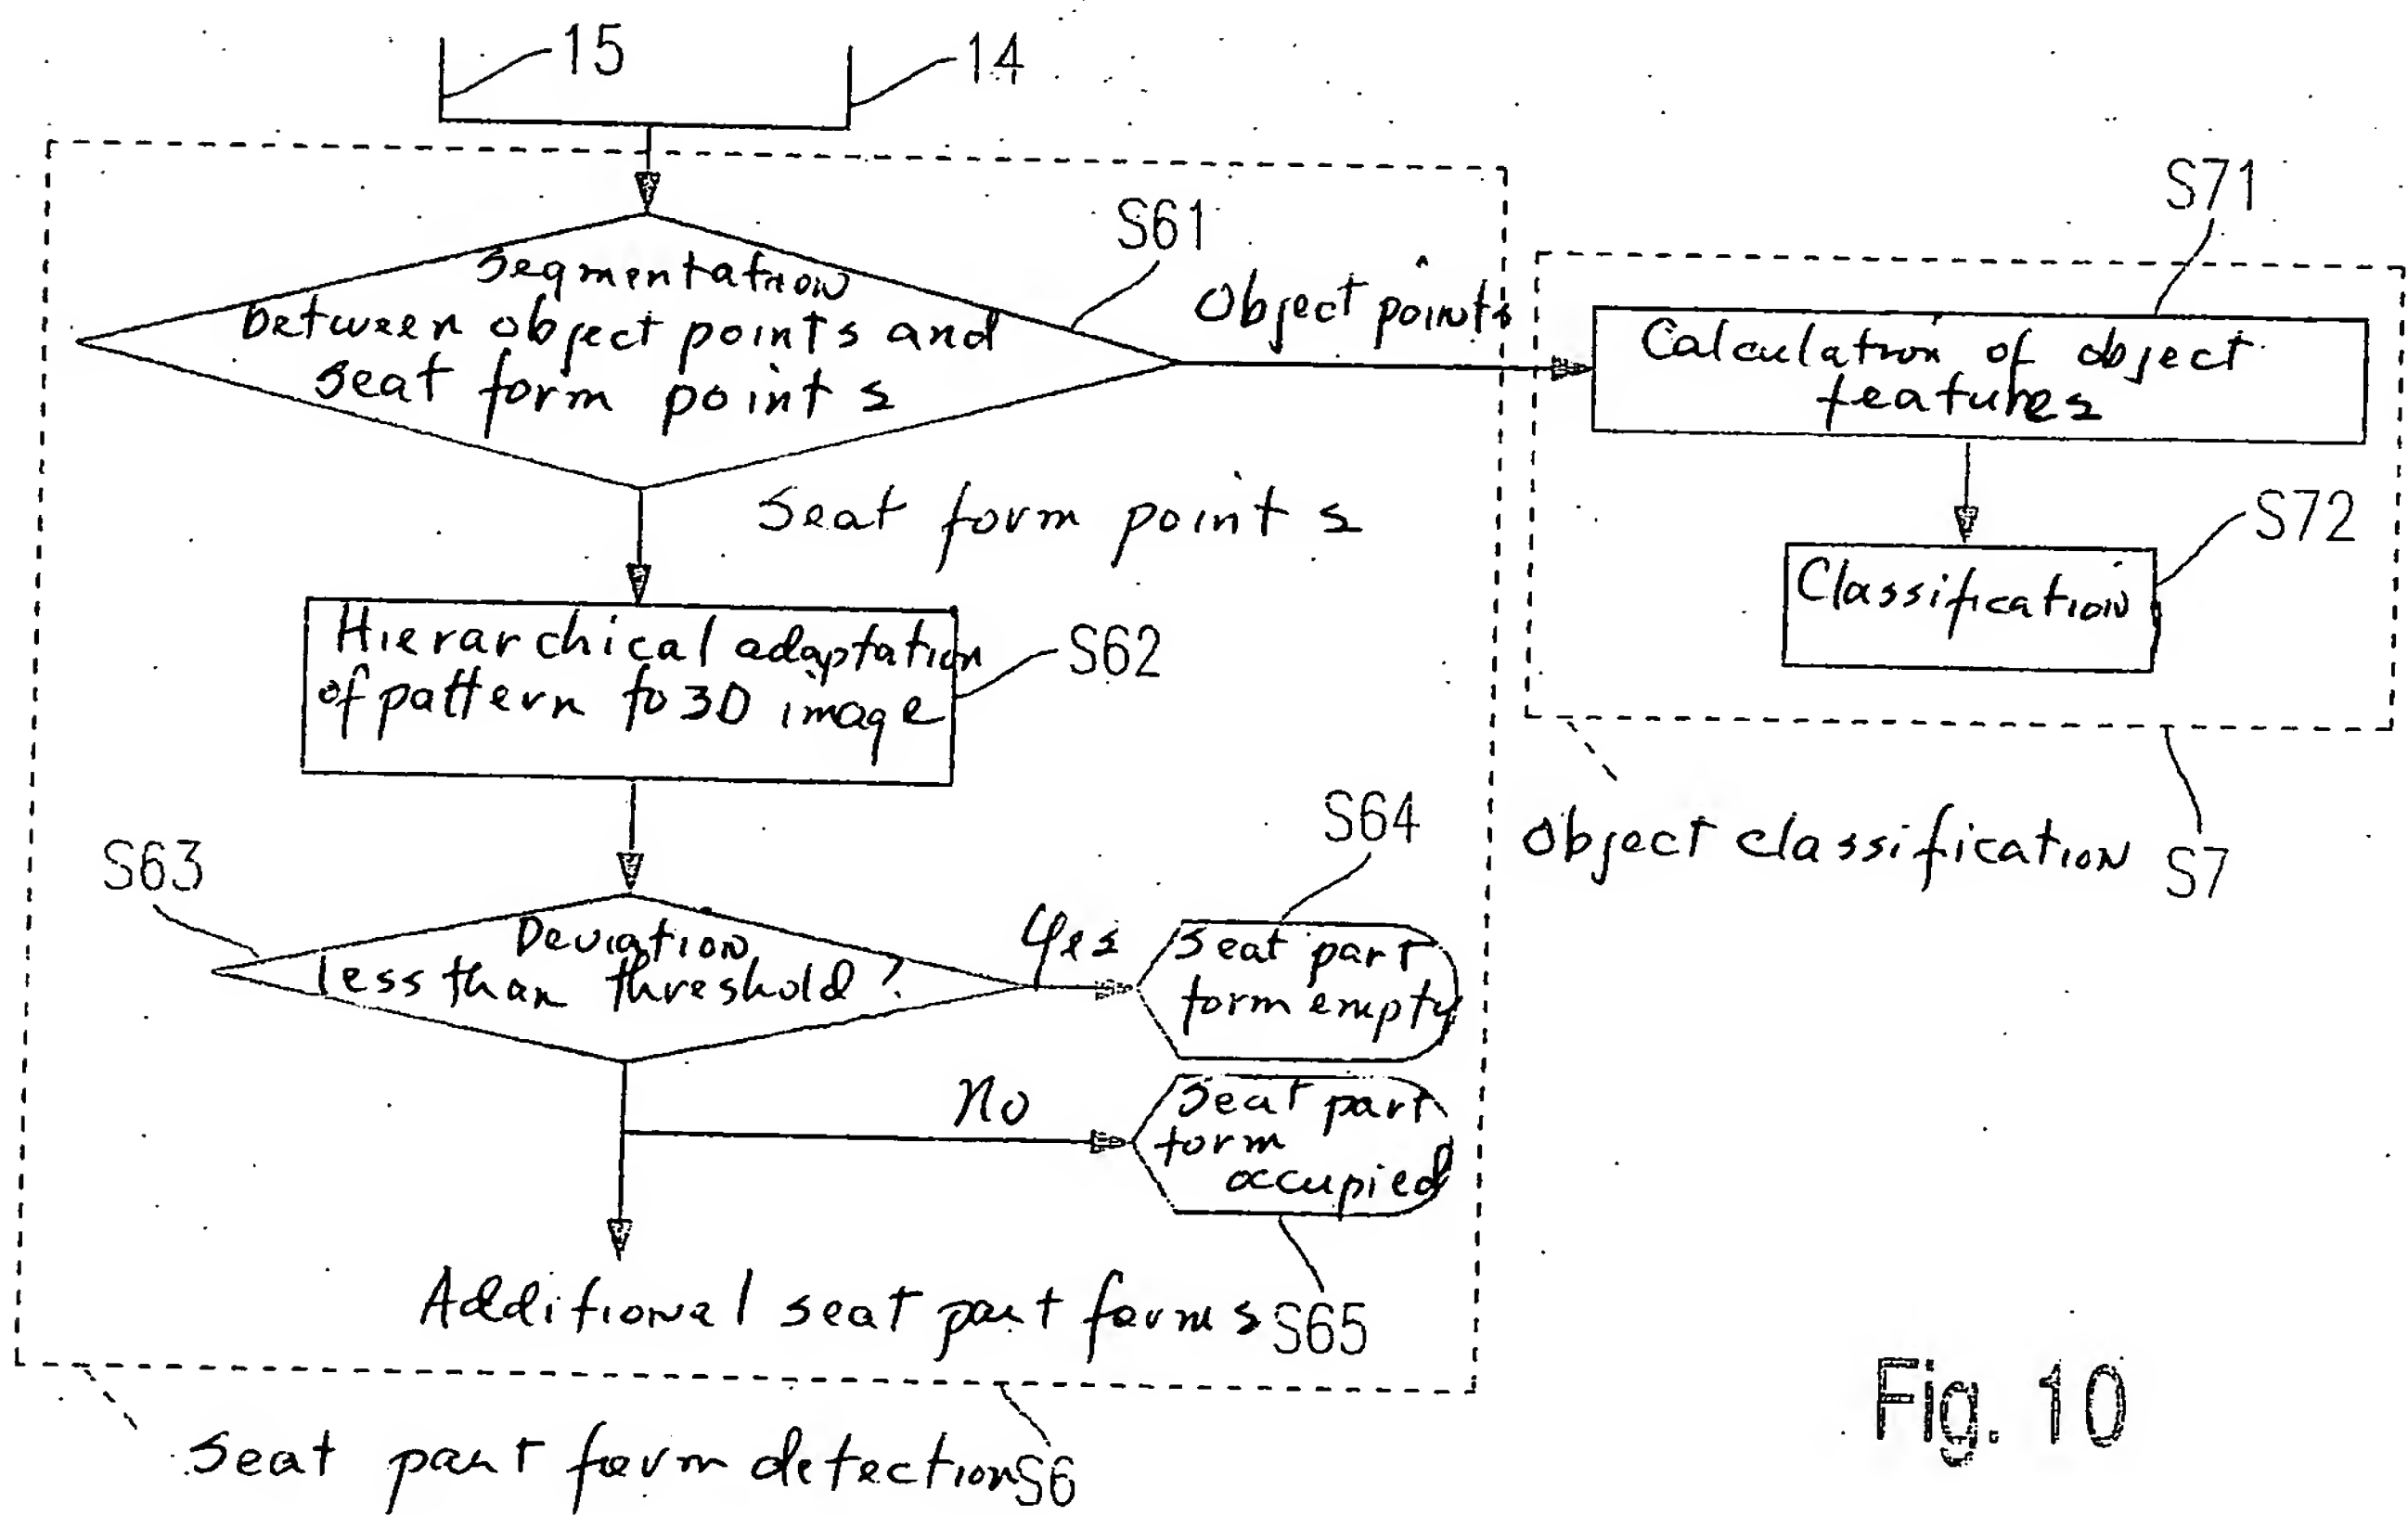 15
14
S61
Segmentation
between object points and
seat form points
Object points
S71
Calculation of object
features
S72
Classification
Seat form points
Hierarchical adaptation
of pattern to 3D image
S62
Object classification
S7
S63
Deviation
less than threshold?
Yes
S64
Seat part
form empty
No
Seat part
form
occupied
S65
Additional seat part forms
Seat part form detection
S6
Fig. 10